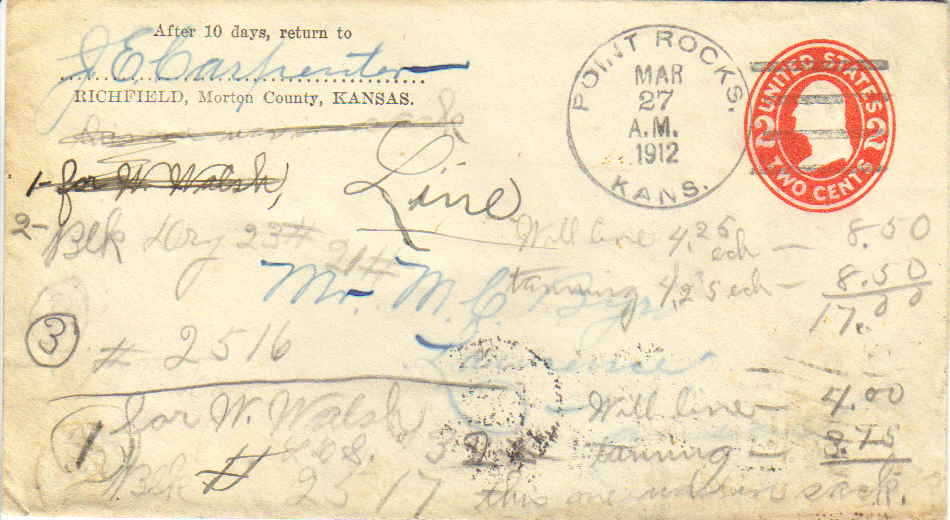 After 10 days, return to
J E Carpenter
RICHFIELD, Morton County, KANSAS.
POINT ROCKS.
MAR
27
A.M.
1912
KANS.
UNITED STATES
2 2
TWO CENTS
1- for W. Walsh,
Line
2- Blk Dry 23#
21#
Will line 4,25 each — 8.50
tanning 4,25 ech — 8.50
17.00
Mr. M. C.
3
# 2516
Lawrence
1 for W. Walsh
Will line — 4.00
tanning — 3.75
Blk # 2517
this one was in sack.